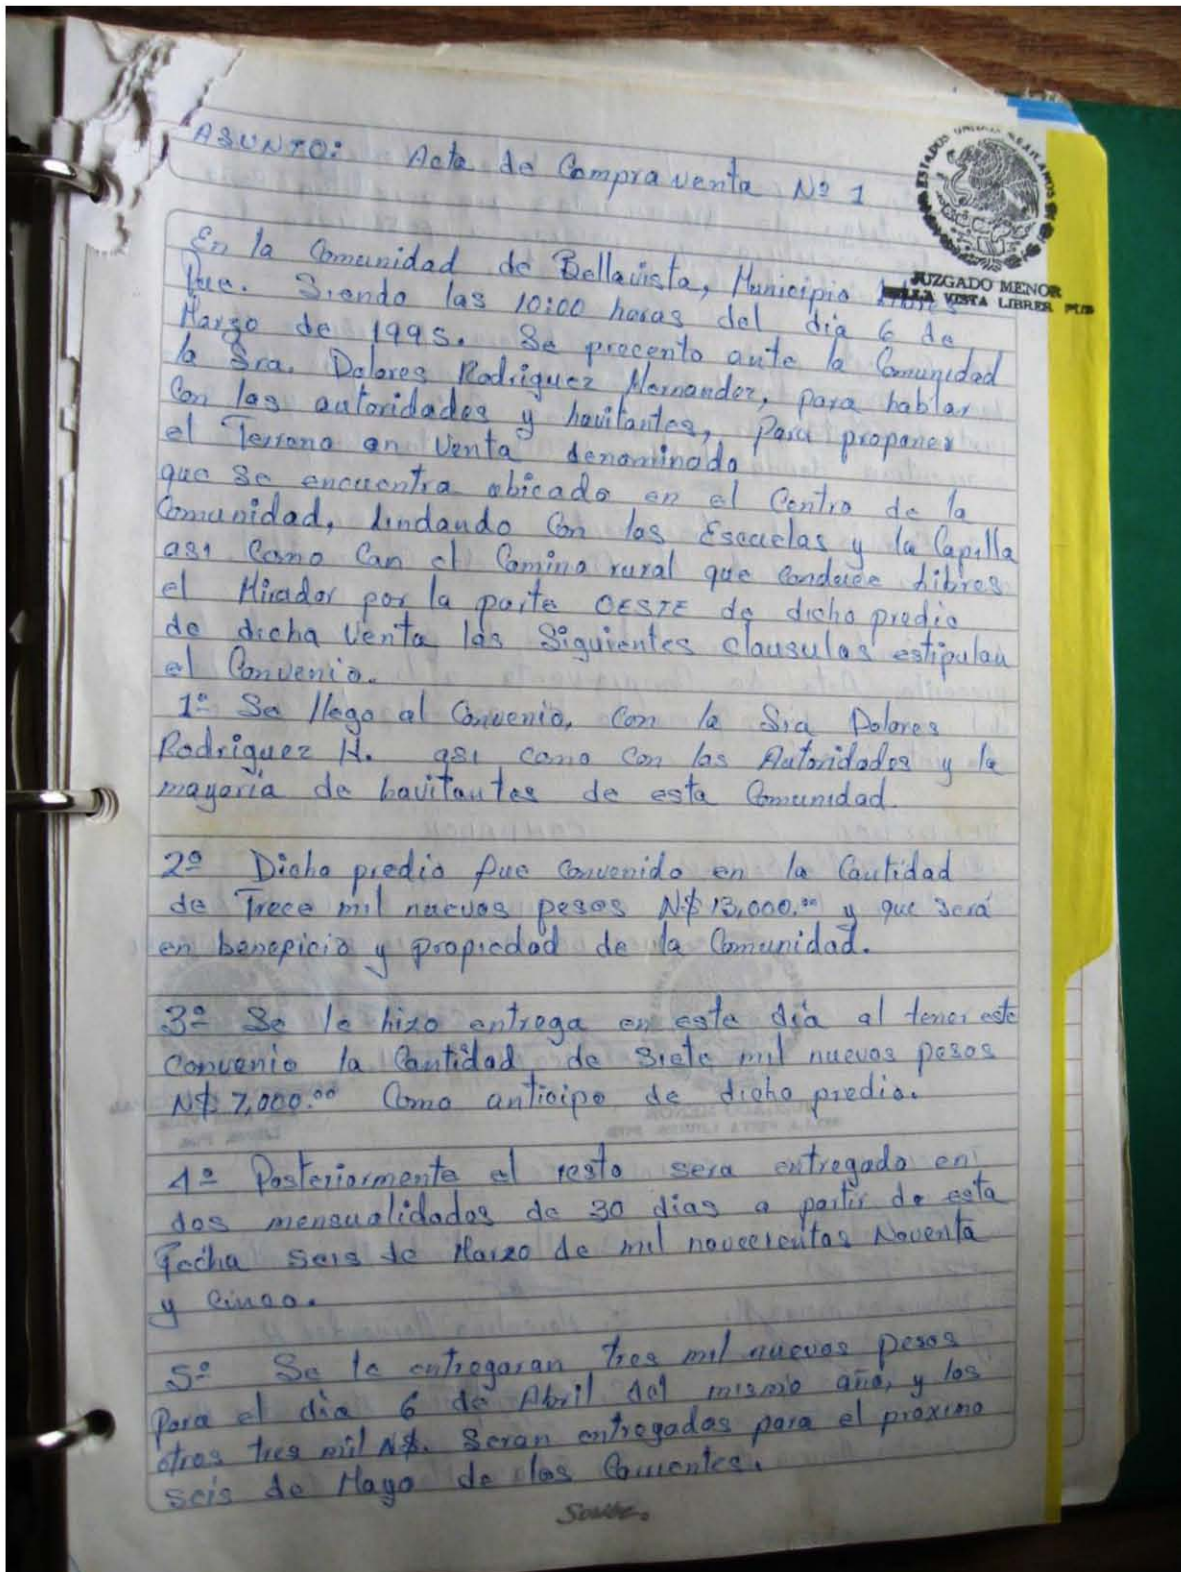 ASUNTO: Acta de Compra venta Nº 1
ESTADOS UNIDOS MEXICANOS
JUZGADO MENOR
BELLA VISTA LIBRES PUE
En la Comunidad de Bellavista, Municipio Libres
Pue. Siendo las 10:00 horas del dia 6 de
Marzo de 1995. Se precento ante la Comunidad
la Sra. Dolores Rodriguez Hernandez, para hablar
Con las autoridades y havitantes, Para proponer
el Terreno en Venta denominado
que se encuentra ubicado en el Centro de la
Comunidad, lindando Con las Escuelas y la Capilla
asi Como Con el Camino rural que conduce Libres
el Mirador por la parte OESTE de dicho predio
de dicha Venta las Siguientes clausulas estipulan
el Convenio.
1º Se llego al Convenio, Con la Sra Dolores
Rodriguez H. asi como Con las Autoridades y la
mayoría de havitantes de esta Comunidad.
2º Dicho predio fue Convenido en la Cantidad
de Trece mil nuevos pesos N$ 13,000.00 y que será
en beneficio y propiedad de la Comunidad.
3º Se le hizo entrega en este día al tenor este
Convenio la Cantidad de Siete mil nuevos pesos
N$ 7,000.00 Como anticipo de dicho predio.
4º Posteriormente el resto sera entregado en
dos mensualidades de 30 dias a partir de esta
Fecha seis de Marzo de mil novecientos Noventa
y Cinco.
5º Se le entregaran tres mil nuevos pesos
Para el día 6 de Abril del mismo año, y los
otros tres mil N$. Seran entregados para el proximo
seis de Mayo de los Corrientes.